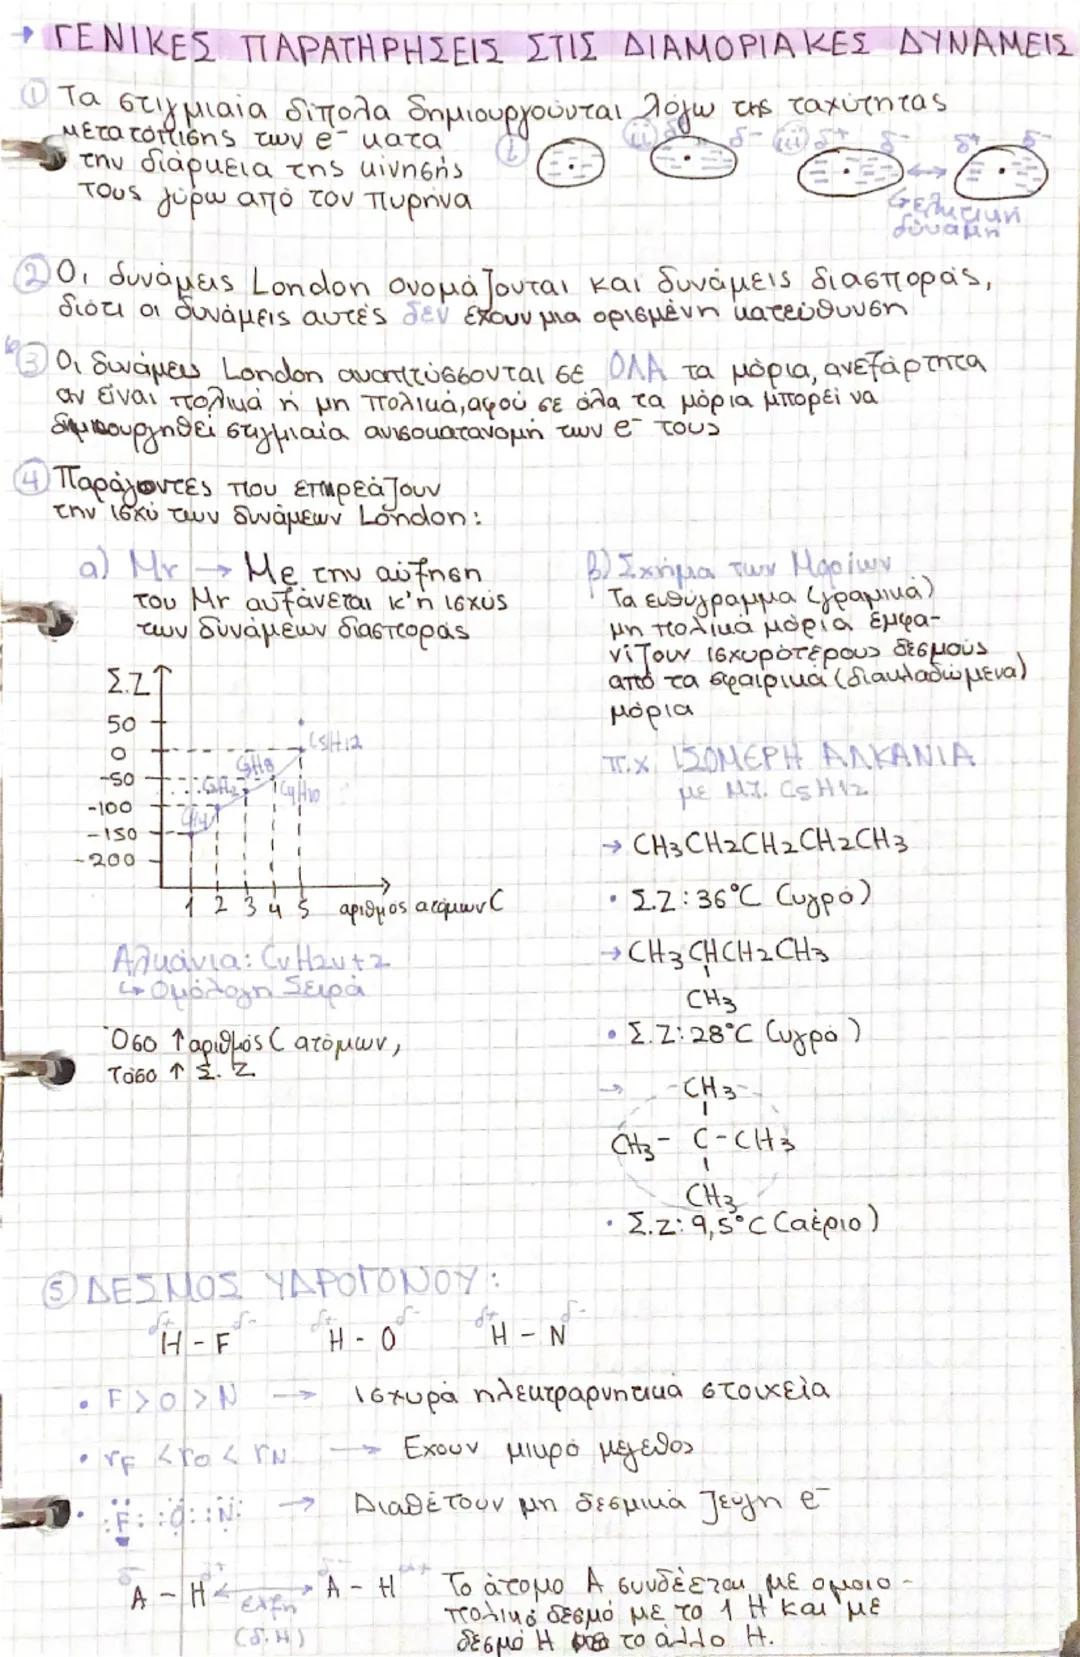 → ΓΕΝΙΚΕΣ ΠΑΡΑΤΗΡΗΣΕΙΣ ΣΤΙΣ ΔΙΑΜΟΡΙΑΚΕΣ ΔΥΝΑΜΕΙΣ
① Τα στιγμιαία δίπολα δημιουργούνται λόγω της ταχύτητας
μετατόπισης των e⁻ κατα
την διάρκεια της κίνησής
τους γύρω από τον πυρήνα
i ii δ⁻ iii δ+ δ⁻ δ+ δ⁻
↪ελκτική
δύναμη
② Οι δυνάμεις London ονομάζονται και δυνάμεις διασποράς,
διότι οι δυνάμεις αυτές δεν έχουν μια ορισμένη κατεύθυνση
③ Οι δυνάμεις London αναπτύσσονται σε ΟΛΑ τα μόρια, ανεξάρτητα
αν είναι πολικά ή μη πολικά, αφού σε όλα τα μόρια μπορεί να
δημιουργηθεί στιγμιαία ανισοκατανομή των e⁻ τους
④ Παράγοντες που επηρεάζουν
την ισχύ των δυνάμεων London:
α) Mr → Με την αύξηση
του Mr αυξάνεται κ'η ισχύς
των δυνάμεων διασποράς
Σ.Ζ
50
0
-50
-100
-150
-200
CH4
C3H8
C4H10
C5H12
1 2 3 4 5 αριθμος ατόμων C
Αλκάνια: CνH2ν+2
↪ Ομόλογη Σειρά
Όσο ↑ αριθμός C ατόμων,
τόσο ↑ Σ.Ζ.
β) Σχήμα των Μορίων
Τα ευθύγραμμα (γραμικά)
μη πολικά μόρια εμφα-
νίζουν ισχυρότερους δεσμούς
από τα σφαιρικά (διακλαδωμένα)
μόρια
π.χ. ΙΣΟΜΕΡΗ ΑΛΚΑΝΙΑ
με Μ.Τ. C5H12
→ CH3CH2CH2CH2CH3
• Σ.Ζ: 36°C (υγρό)
→ CH3CHCH2CH3
CH3
• Σ.Ζ: 28°C (υγρό)
→ CH3
CH3 - C - CH3
CH3
• Σ.Ζ: 9,5°C (αέριο)
⑤ ΔΕΣΜΟΣ ΥΔΡΟΓΟΝΟΥ:
δ+ δ- δ+ δ- δ+ δ-
H - F H - O H - N
• F > O > N → ισχυρά ηλεκτραρνητικά στοιχεία
• rF < rO < rN → Έχουν μικρό μέγεθος
• :F: :O: :N: → Διαθέτουν μη δεσμικά ζεύγη e⁻
δ- δ+ δ- δ+
A - H ↔ A - H
έλξη
(δ.Η)
Το άτομο Α συνδέεται με ομοιο-
πολικό δεσμό με το 1 Η και με
δεσμό Η με το άλλο Η.